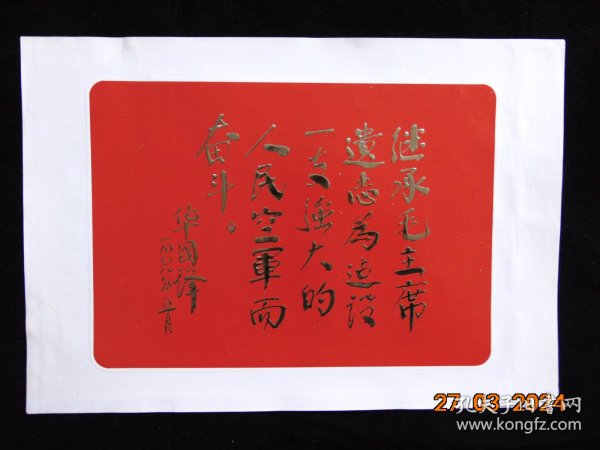 继承毛主席
遗志为建设
一支强大的
人民空軍而
奋斗。
华国锋
一九七八年五月
27.03.2024
孔夫子旧书网
www.kongfz.com